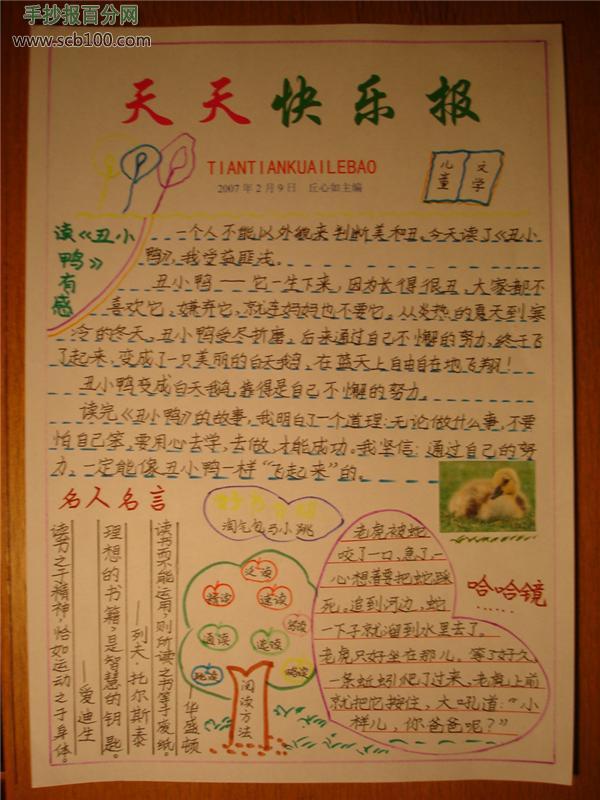 手抄报百分网
www.scb100.com
天天快乐报
TIANTIANKUAILEBAO
2007年2月9日 丘心如主编
儿童
文学
读《丑小鸭》有感
一个人不能以外貌来判断美和丑。今天读了《丑小
鸭》,我受益匪浅。
丑小鸭——它一生下来,因为长得很丑,大家都不
喜欢它,嫌弃它,就连妈妈也不要它。从炎热的夏天到寒
冷的冬天,丑小鸭受尽折磨。后来通过自己不懈的努力,终于飞
了起来,变成了一只美丽的白天鹅,在蓝天上自由自在地飞翔!
丑小鸭变成白天鹅,靠得是自己不懈的努力。
读完《丑小鸭》的故事,我明白了一个道理:无论做什么事,不要
怕自己笨,要用心去学,去做,才能成功。我坚信:通过自己的努
力,一定能像丑小鸭一样“飞起来”的。
名人名言
读书而不能运用,则所读之书等于废纸。
——华盛顿
理想的书籍,是智慧的钥匙。
——列夫·托尔斯泰
读书之于精神,恰如运动之于身体。
——爱迪生
淘气包马小跳
速读
通读
选读
阅读方法
哈哈镜
老虎被蛇
咬了一口,急了一
心想着要把蛇踩
死。追到河边,蛇
一下子就溜到水里去了。
老虎只好坐在那儿。等了好久,
一条蚯蚓爬了过来,老虎上前
就把它按住,大吼道:“小
样儿,你爸爸呢?”